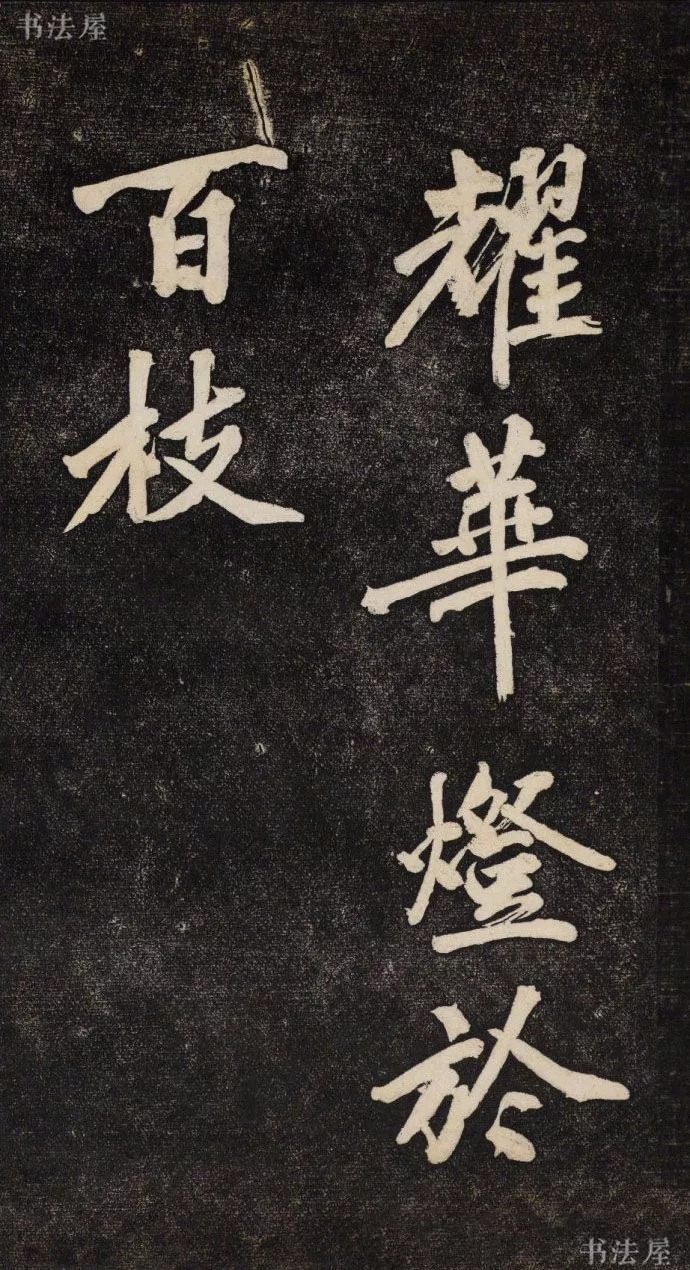 书法屋
耀華燈於
百枝
书法屋